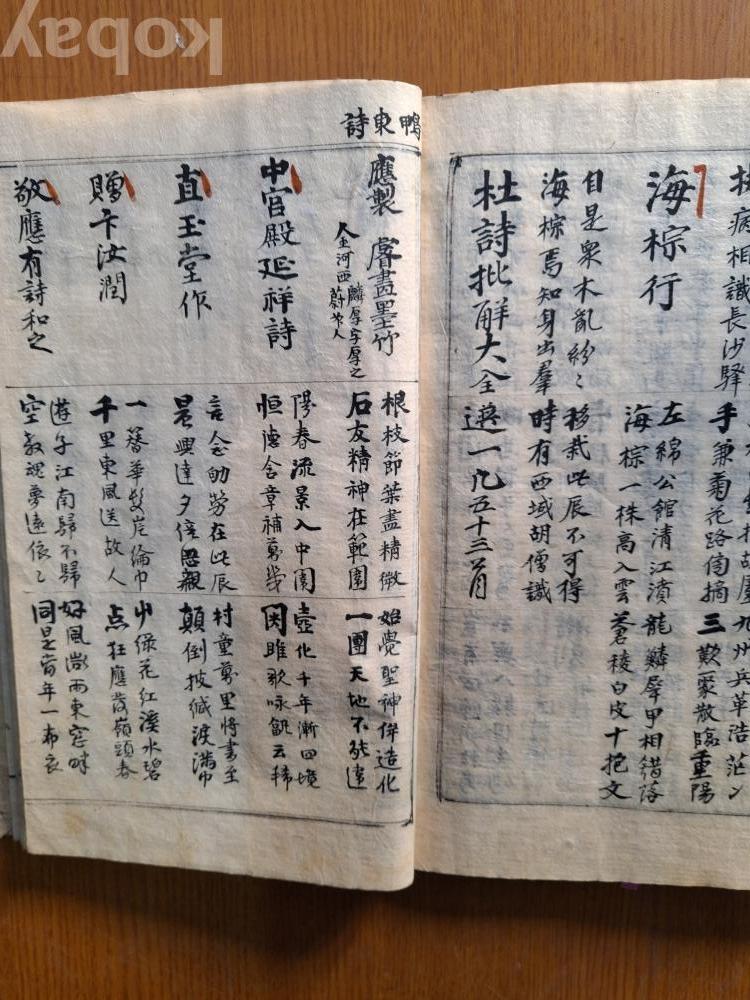 kobay
海棕行
左綿公館清江濆
海棕一株高入雲
龍鱗犀甲相錯落
蒼稜白皮十抱文
自是衆木亂紛〻
海棕焉知身出羣
移栽此辰不可得
時有西域胡僧識
杜詩批解大全
病相識長沙驛
手兼菊花路傍摘
九州兵革浩茫〻
三歎聚散臨重陽
鴨東詩
應製 睿畫墨竹
金河西麟厚字厚之
蔚山人
根枝節葉盡精微
石友精神在範圍
始覺聖神侔造化
一團天地不能違
中宮殿延祥詩
陽春流景入中闈
恒德含章補萬幾
壼化千年漸四境
因雎歌咏
直玉堂作
言念劬勞在此辰
晨興達夕倍思親
村童萬里將書至
顛倒披緘淚滿巾
贈卞汝潤
一簪華髮岸綸巾
千里東風送故人
山綠花紅溪水碧
点
應
嶺頭春
敬應有詩和之
遊子江南歸不歸
空教魂夢遠依〻
好風微雨東窓
同是當年一布衣